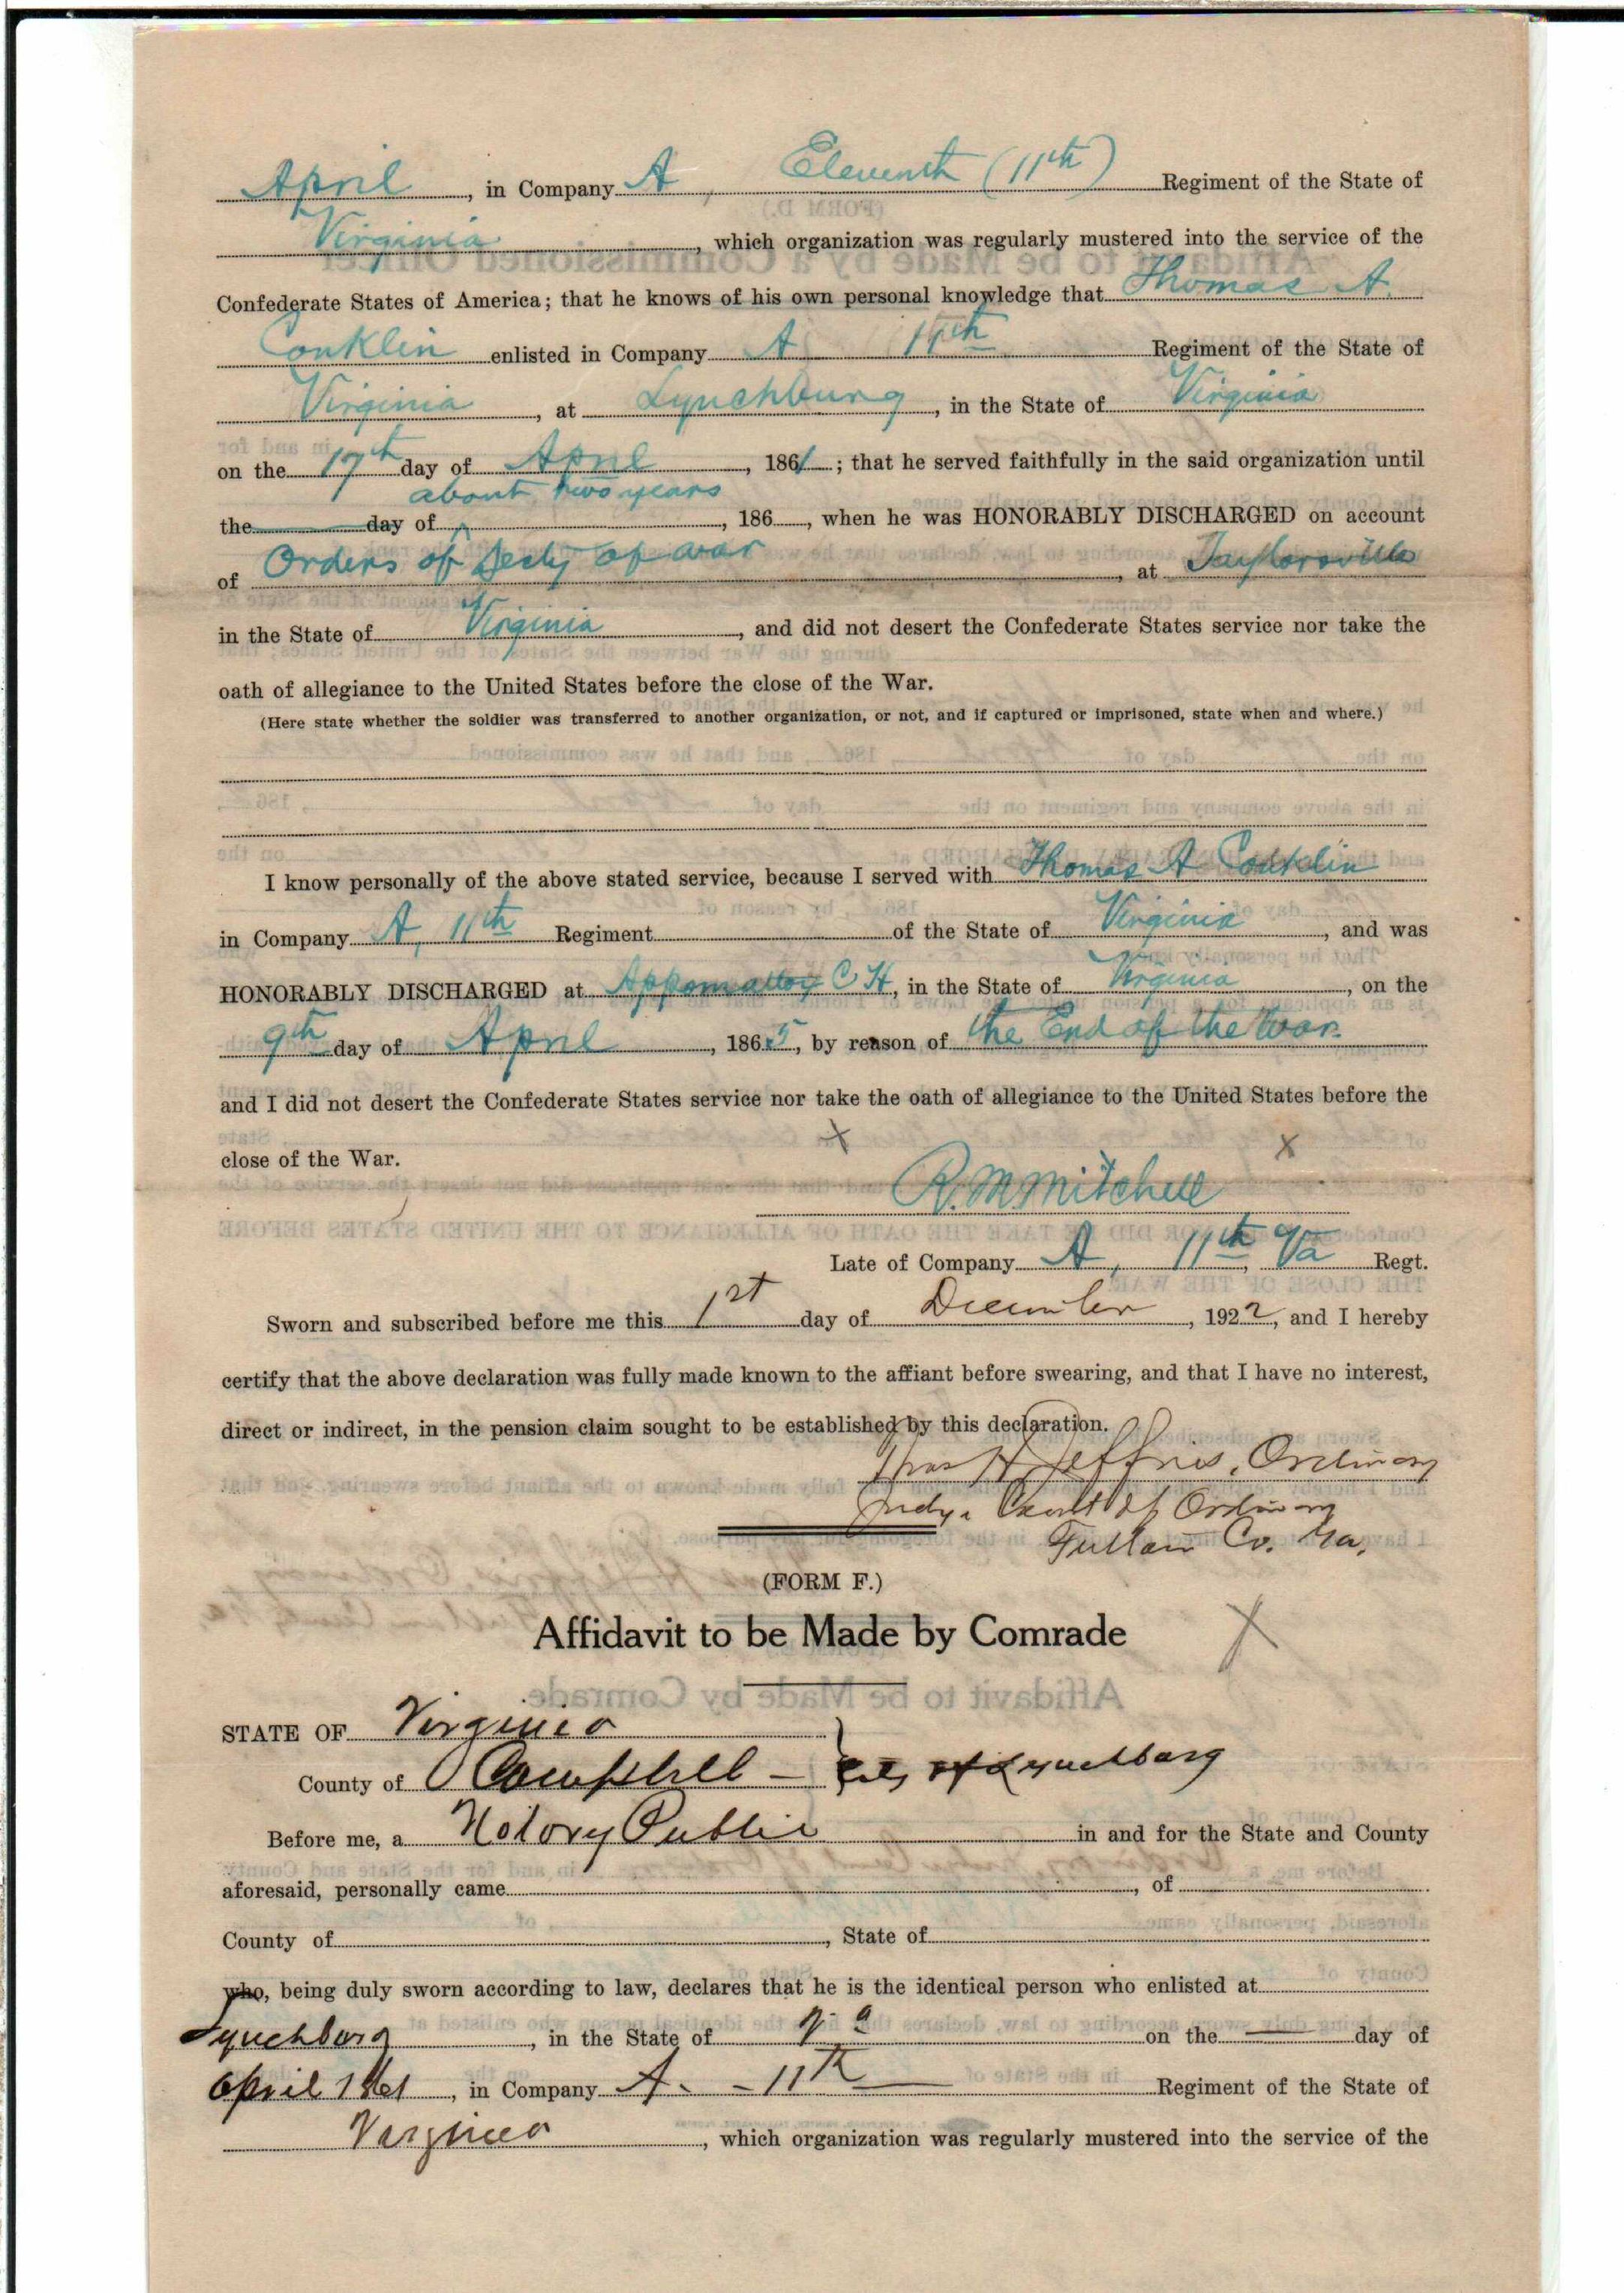 April, in Company A, Eleventh (11th) Regiment of the State of
Virginia, which organization was regularly mustered into the service of the
Confederate States of America; that he knows of his own personal knowledge that Thomas A.
Conklin enlisted in Company A 11th Regiment of the State of
Virginia, at Lynchburg, in the State of Virginia
on the 17th day of April, 1861; that he served faithfully in the said organization until
about two years
the day of, 186, when he was HONORABLY DISCHARGED on account
of Orders of Secty of war, at Taylorsville
in the State of Virginia, and did not desert the Confederate States service nor take the
oath of allegiance to the United States before the close of the War.
(Here state whether the soldier was transferred to another organization, or not, and if captured or imprisoned, state when and where.)
I know personally of the above stated service, because I served with Thomas A Conklin
in Company A, 11th Regiment of the State of Virginia, and was
HONORABLY DISCHARGED at Appomattox C H, in the State of Virginia, on the
9th day of April, 1865, by reason of the End of the War.
and I did not desert the Confederate States service nor take the oath of allegiance to the United States before the
close of the War.
x x
R. M. Mitchell
Late of Company A, 11th, Va Regt.
Sworn and subscribed before me this 1st day of December, 1922, and I hereby
certify that the above declaration was fully made known to the affiant before swearing, and that I have no interest,
direct or indirect, in the pension claim sought to be established by this declaration.
Thos H Jeffries, Ordinary
Judge Court of Ordinary
Fulton Co. Ga.
(FORM F.)
Affidavit to be Made by Comrade X
STATE OF Virginia
County of Campbell - City of Lynchburg
Before me, a Notory Public in and for the State and County
aforesaid, personally came, of
County of, State of
who, being duly sworn according to law, declares that he is the identical person who enlisted at
Lynchburg, in the State of Va on the — day of
April 1861, in Company A. - 11th Regiment of the State of
Virginia, which organization was regularly mustered into the service of the